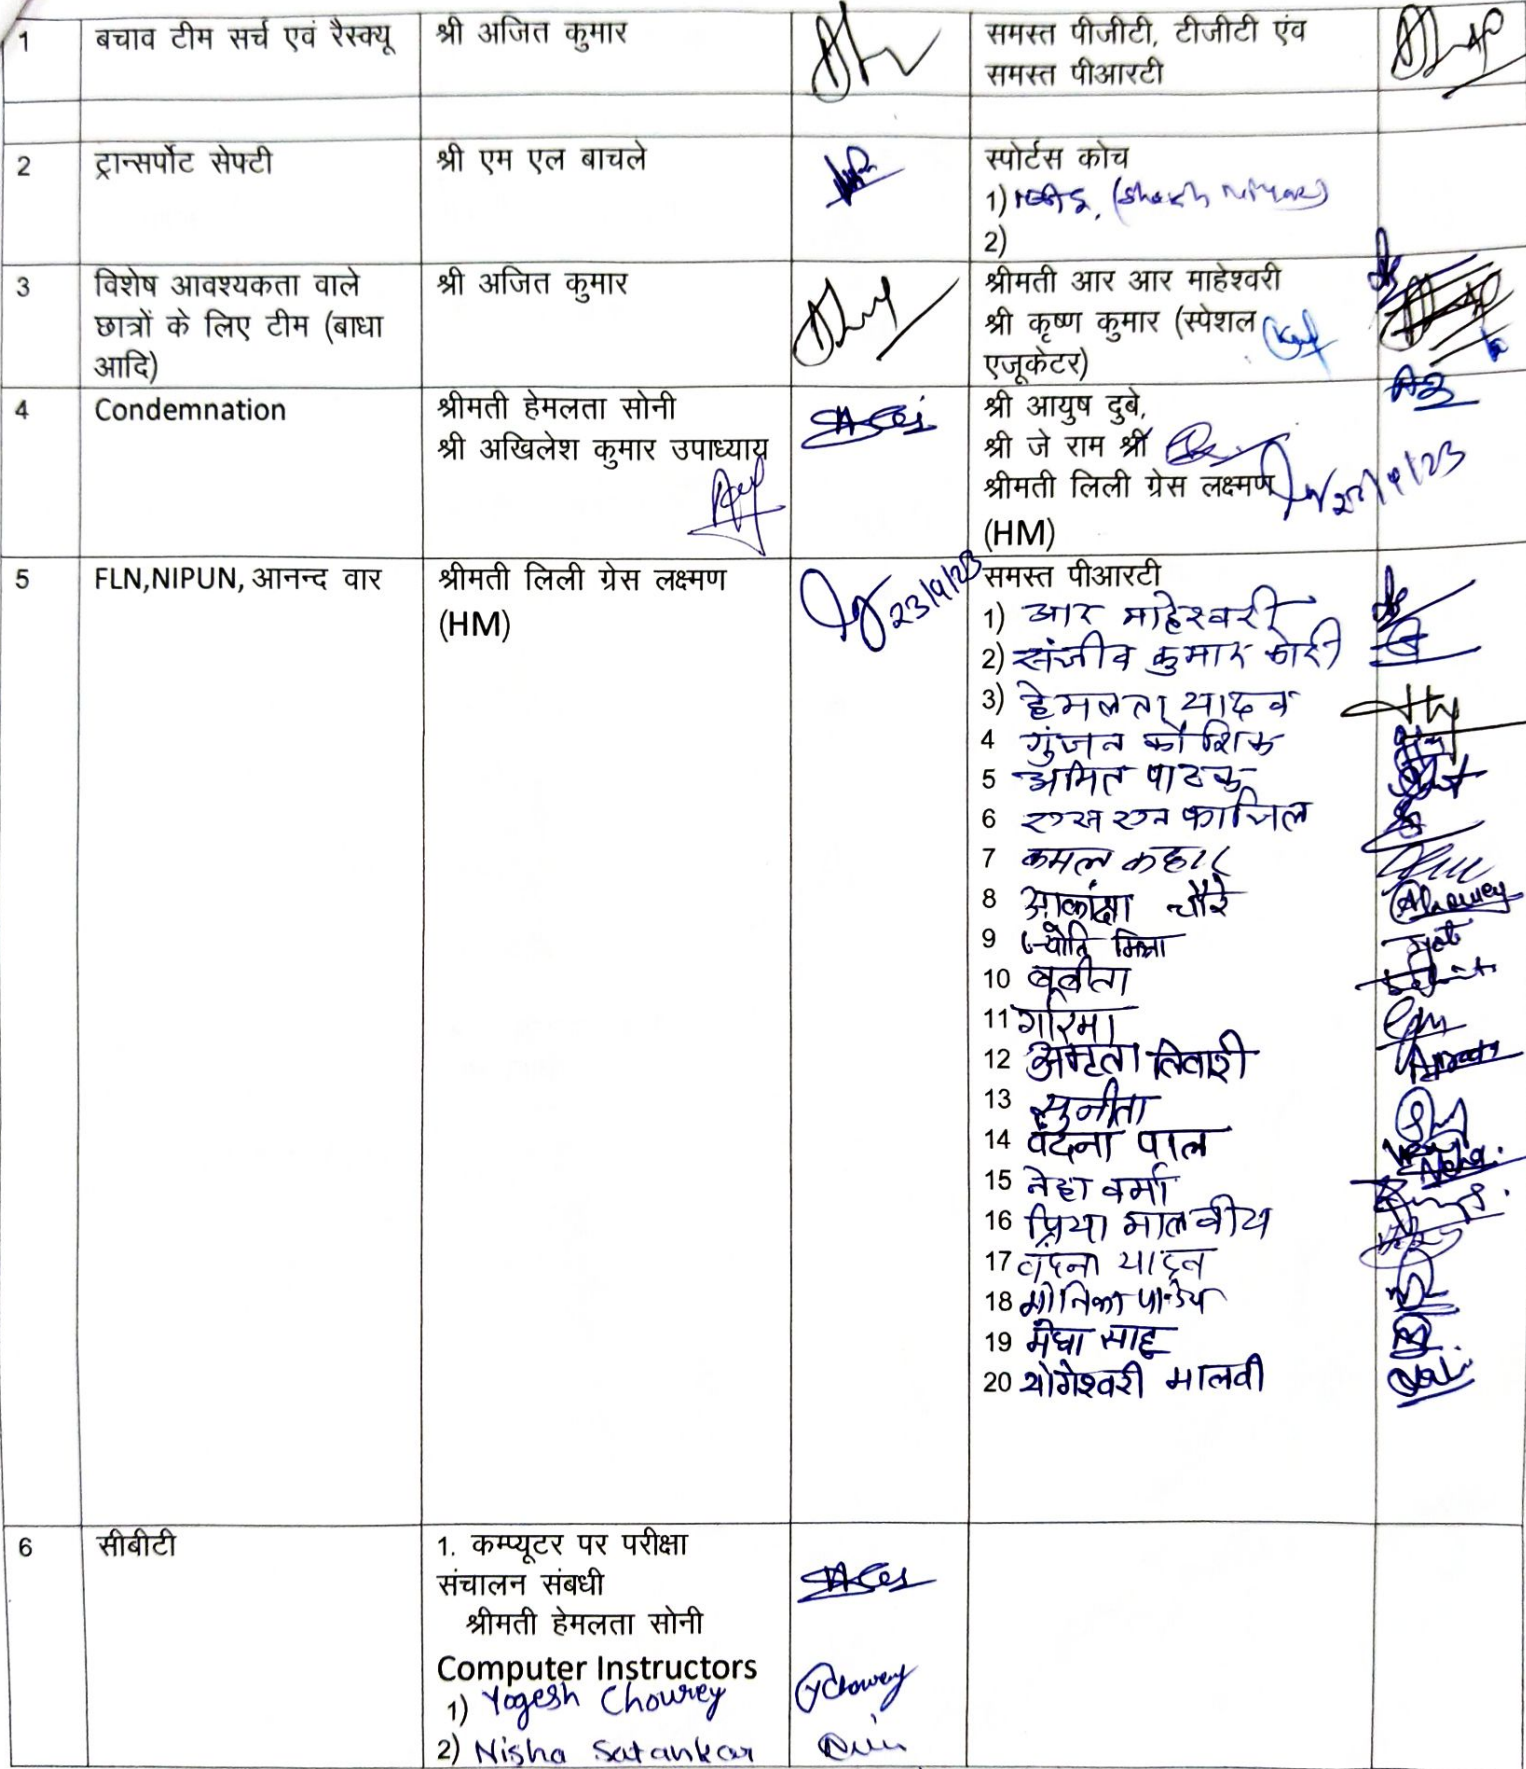 1 बचाव टीम सर्च एवं रैस्क्यू श्री अजित कुमार समस्त पीजीटी, टीजीटी एंव
समस्त पीआरटी
2 ट्रान्सर्पोट सेफ्टी श्री एम एल बाचले स्पोर्टस कोच
1)
2)
3 विशेष आवश्यकता वाले श्री अजित कुमार श्रीमती आर आर माहेश्वरी
छात्रों के लिए टीम (बाधा श्री कृष्ण कुमार (स्पेशल
आदि) एजूकेटर)
4 Condemnation श्रीमती हेमलता सोनी श्री आयुष दुबे,
श्री अखिलेश कुमार उपाध्याय श्री जे राम श्री
श्रीमती लिली ग्रेस लक्ष्मण
(HM)
5 FLN,NIPUN, आनन्द वार श्रीमती लिली ग्रेस लक्ष्मण 23/9/23 समस्त पीआरटी
(HM) 1) आर माहेश्वरी
2) संजीव कुमार
3) हेमलता यादव
4 गुंजन कौशिक
5 अमित पाठक
6 एस एन काजिल
7 कमल कहार
8 आकांक्षा चौरे
9 ज्योति मिश्रा
10 बबीता
11 गरिमा
12 अमृता तिवारी
13 सुनीता
14 वंदना पाल
15 नेहा वर्मा
16 प्रिया मालवीय
17 वंदना यादव
18 मोनिका पान्डेय
19 मेघा साहू
20 योगेश्वरी मालवी
6 सीबीटी 1. कम्प्यूटर पर परीक्षा
संचालन संबधी
श्रीमती हेमलता सोनी
Computer Instructors
1) Yogesh Chourey
2) Nisha Satankar